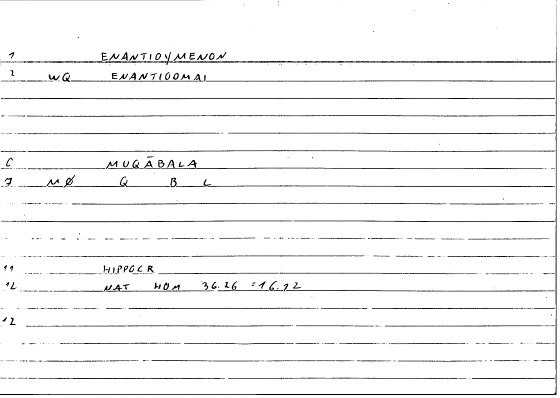 1 ENANTIOYMENON
2 WQ ENANTIOOMAI
6 MUQĀBALA
7 MØ Q B L
11 HIPPOCR
12 NAT HOM 36.26 =16.12
12